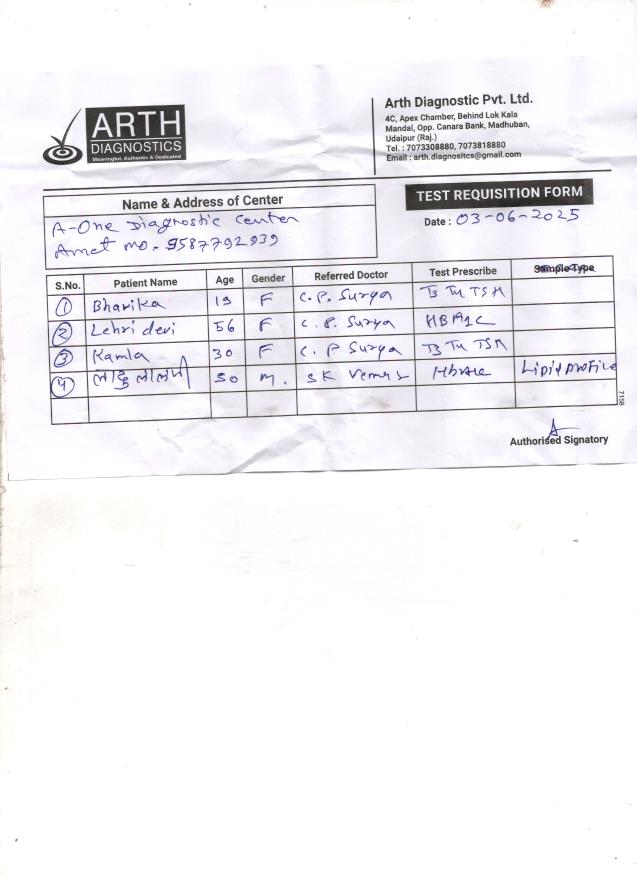 ARTH
DIAGNOSTICS
Meaningful, Authentic & Dedicated
Arth Diagnostic Pvt. Ltd.
4C, Apex Chamber, Behind Lok Kala
Mandal, Opp. Canara Bank, Madhuban,
Udaipur (Raj.)
Tel. : 7073308880, 7073818880
Email : arth.diagnositcs@gmail.com
Name & Address of Center
A-One Diagnostic Center
Amet mo. 9587792939
TEST REQUISITION FORM
Date : 03-06-2025
S.No. Patient Name Age Gender Referred Doctor Test Prescribe Sample Type
1 Bhavika 19 F C. P. Surya T3 T4 TSH
2 Lehri devi 56 F C. P. Surya HBA1C
3 Kamla 30 F C. P Surya T3 T4 TSH
4 50 M. SK Lipid profile
7158
Authorised Signatory